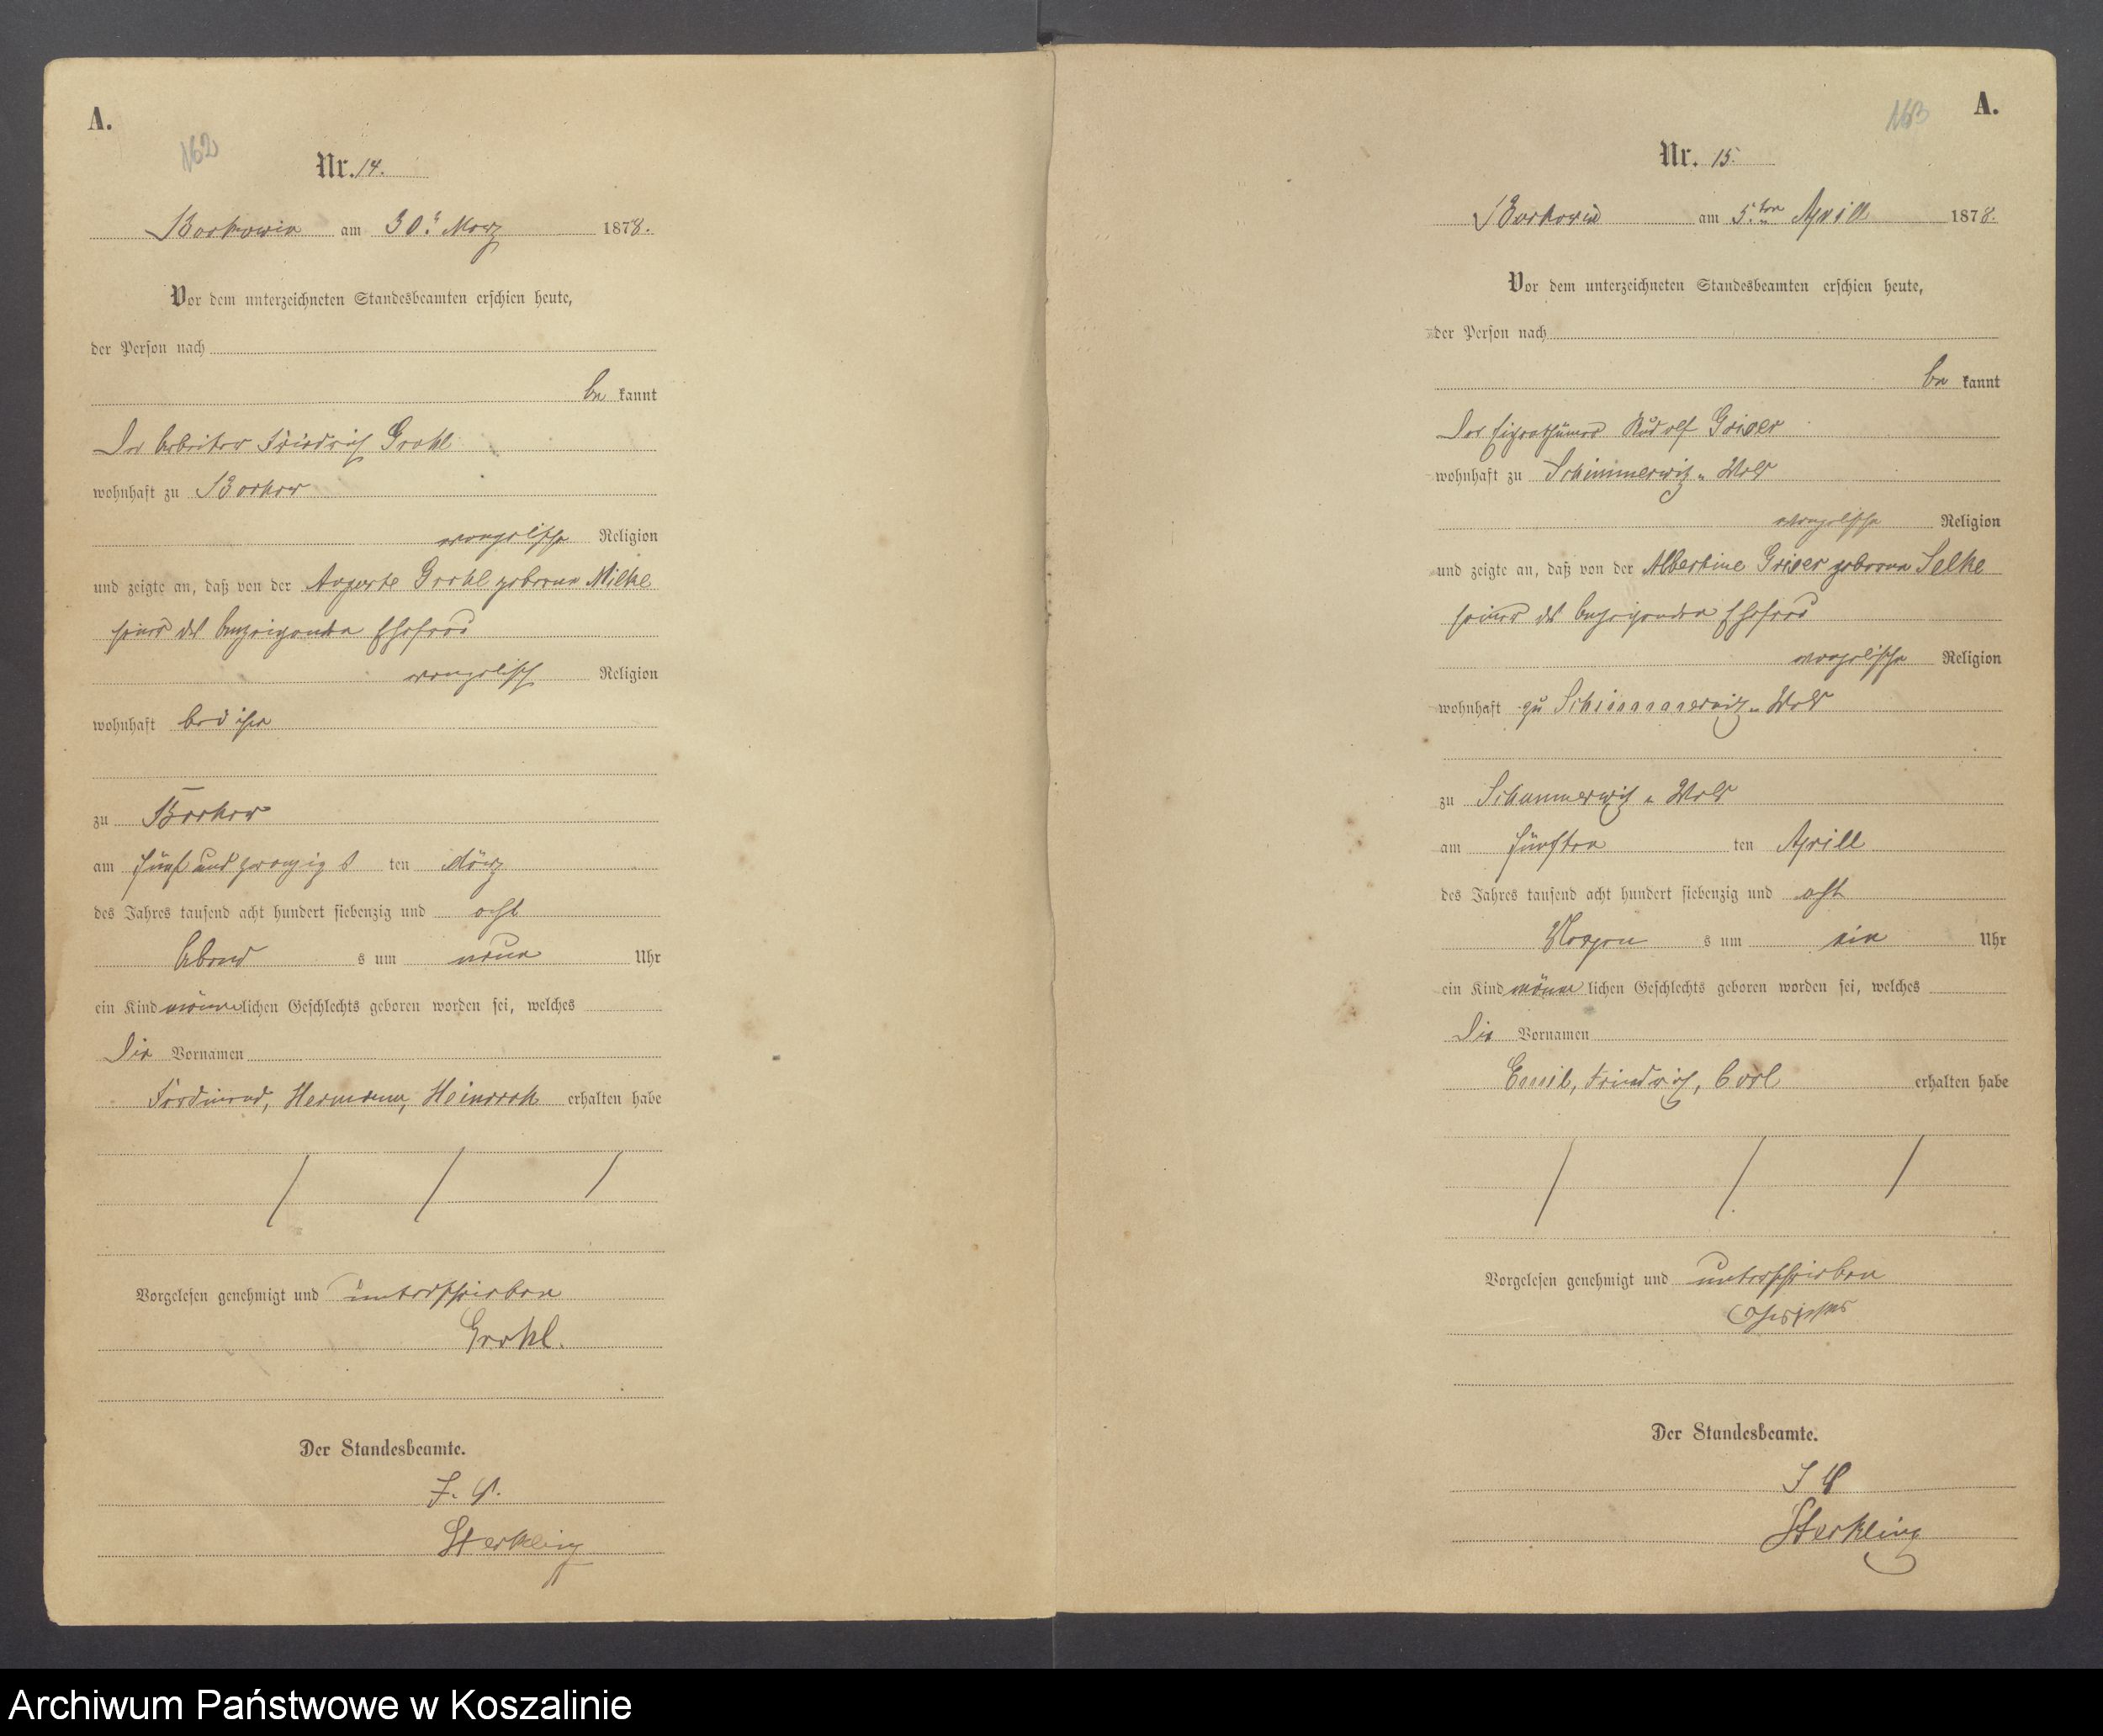 A.
162
Nr. 14.
Borkowin am 30. März 1878.
Vor dem unterzeichneten Standesbeamten erschien heute,
der Person nach
be kannt
Der Arbeiter Friedrich Grohl
wohnhaft zu Borkow
evangelische Religion
und zeigte an, daß von der Auguste Grohl geborene Milke
seiner des anzeigenden Ehefrau
evangelisch Religion
wohnhaft bei ihm
zu Borkow
am fünf und zwanzig s ten März
des Jahres tausend acht hundert siebenzig und acht
Abend s um neun Uhr
ein Kind männ lichen Geschlechts geboren worden sei, welches
die Vornamen
Ferdinand, Hermann, Heinrich erhalten habe
Vorgelesen genehmigt und unterschrieben
Grohl.
Der Standesbeamte.
J. V.
Sterkling
A.
163
Nr. 15.
Borkowin am 5.ten Aprill 1878.
Vor dem unterzeichneten Standesbeamten erschien heute,
der Person nach
be kannt
Der Eigenthümer Rudolf
wohnhaft zu Schimmerwitz
evangelische Religion
und zeigte an, daß von der Albertine geborene Selke
seiner des anzeigenden Ehefrau
evangelische Religion
wohnhaft zu Schimmerwitz
zu Schimmerwitz
am fünften ten Aprill
des Jahres tausend acht hundert siebenzig und acht
Morgen s um ein Uhr
ein Kind männ lichen Geschlechts geboren worden sei, welches
die Vornamen
Emil, Friedrich, Carl erhalten habe
Vorgelesen genehmigt und unterschrieben
Der Standesbeamte.
J V
Sterkling
Archiwum Państwowe w Koszalinie